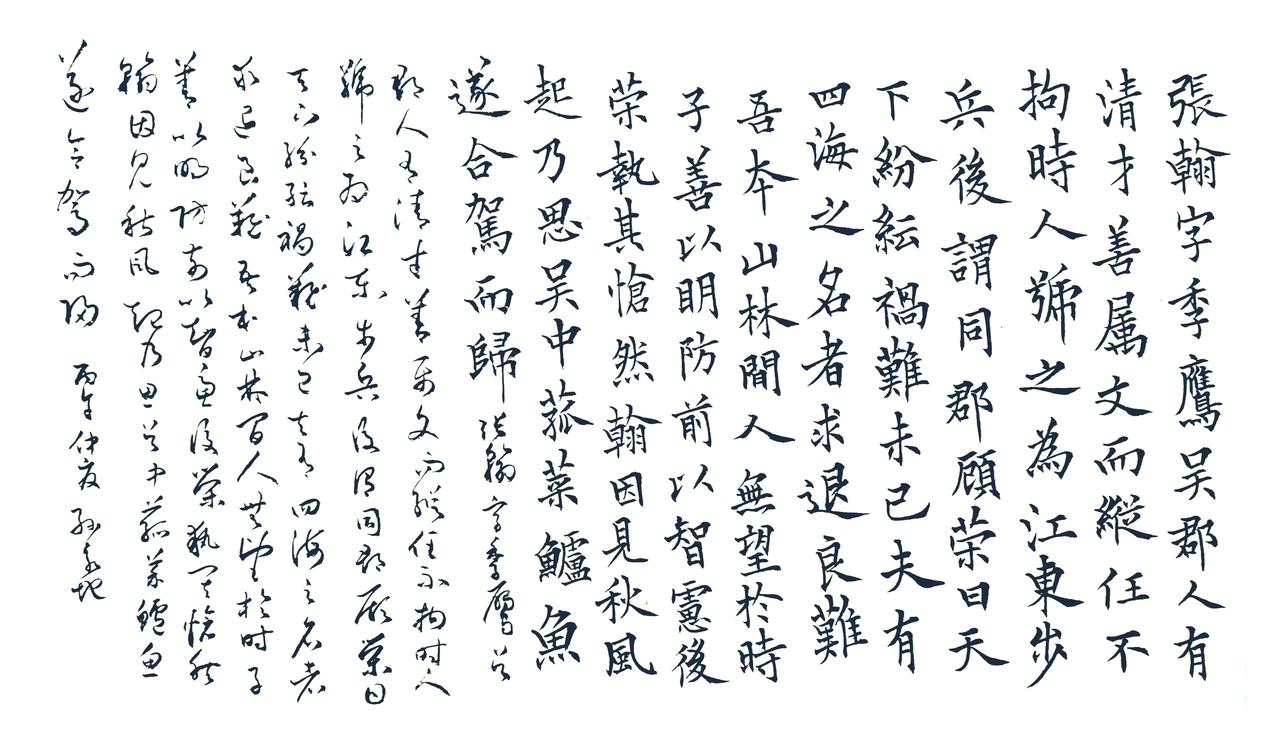 張翰字季鷹吳郡人有
清才善属文而縱任不
拘時人號之為江東步
兵後謂同郡顧荣曰天
下紛紜禍難未已夫有
四海之名者求退良難
吾本山林間人無望於時
子善以明防前以智慮後
荣執其愴然翰因見秋風
起乃思吴中菰菜鱸魚
遂合駕而歸 張翰字季鷹吴
郡人有清才善属文而縱任不拘时人
號之为江東步兵後謂同郡顾荣曰
天下紛紜禍難未已夫有四海之名者
求退良難吾本山林间人無望於时子
善以明防前以智慮後荣執其愴然
翰因見秋風起乃思吴中菰菜鱸鱼
遂合駕而歸 丙午仲夏孫